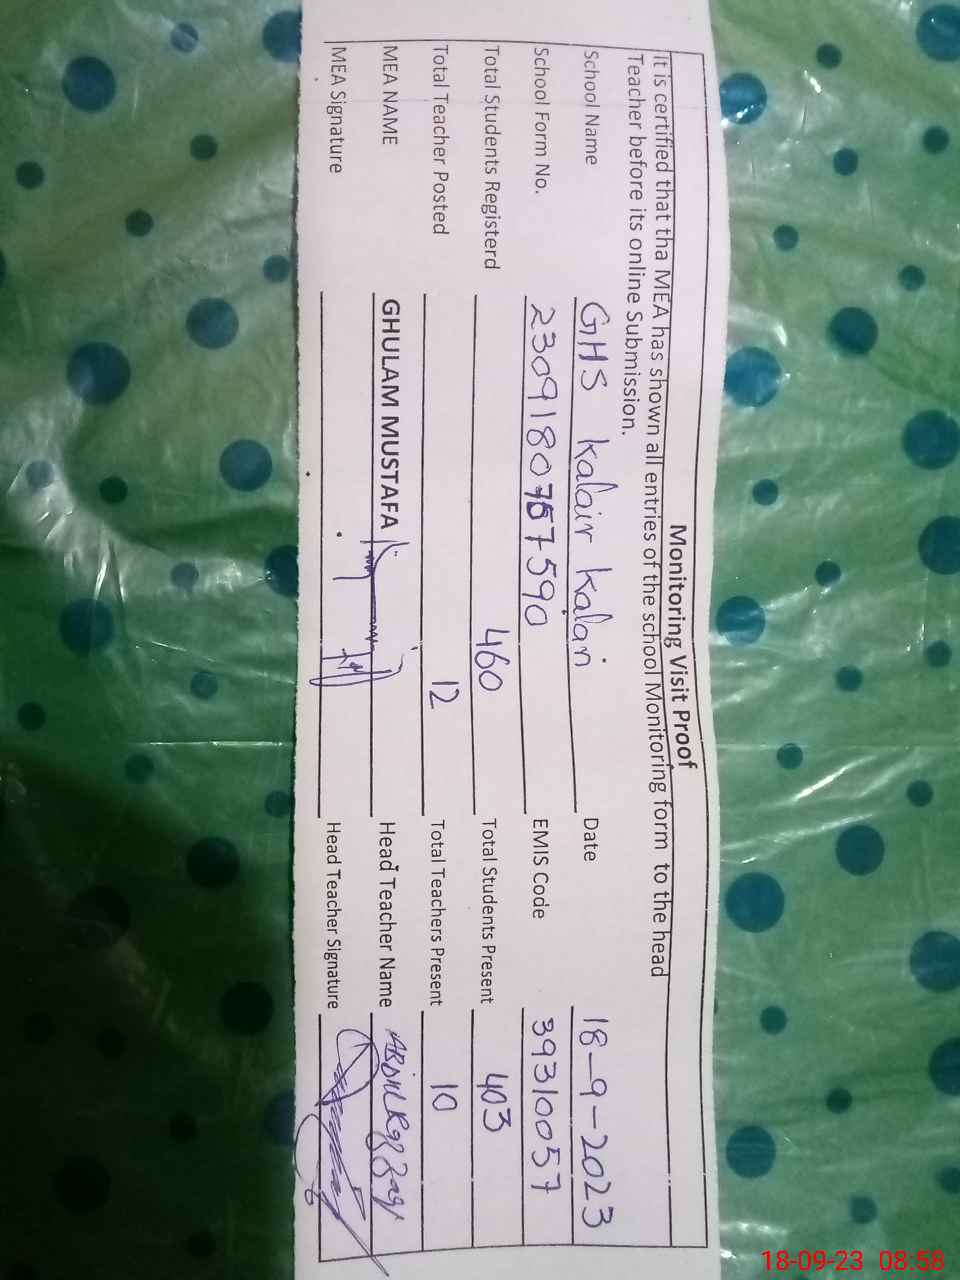 Monitoring Visit Proof
It is certified that tha MEA has shown all entries of the school Monitoring form to the head
Teacher before its online Submission.
School Name GHS Kalair Kalan Date 18-9-2023
School Form No. EMIS Code 39310057
Total Students Registerd 460 Total Students Present 403
Total Teacher Posted 12 Total Teachers Present 10
MEA NAME GHULAM MUSTAFA Head Teacher Name
MEA Signature Head Teacher Signature
18-09-23 08:58